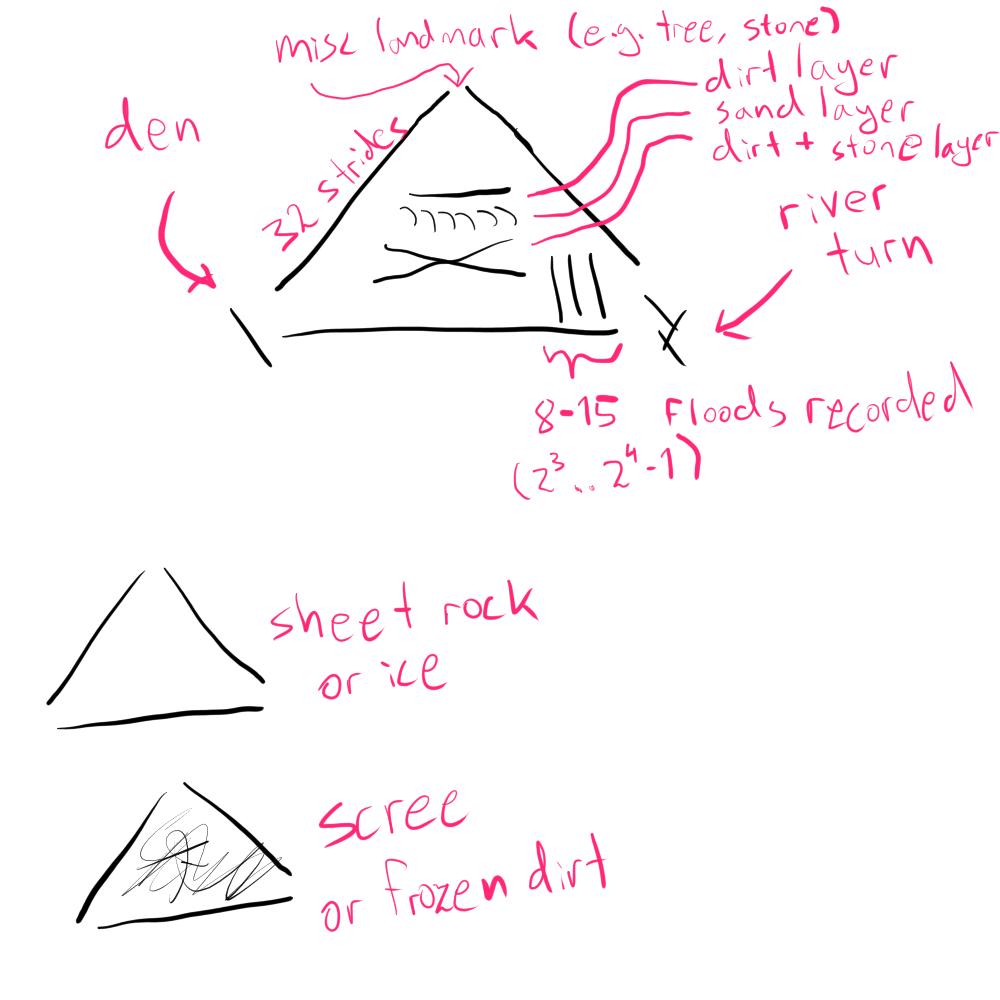 misc landmark (e.g. tree, stone)
dirt layer
sand layer
dirt + stone layer
den
32 strides
river
turn
8-15 floods recorded
(2³..2⁴-1)
sheet rock
or ice
scree
or frozen dirt